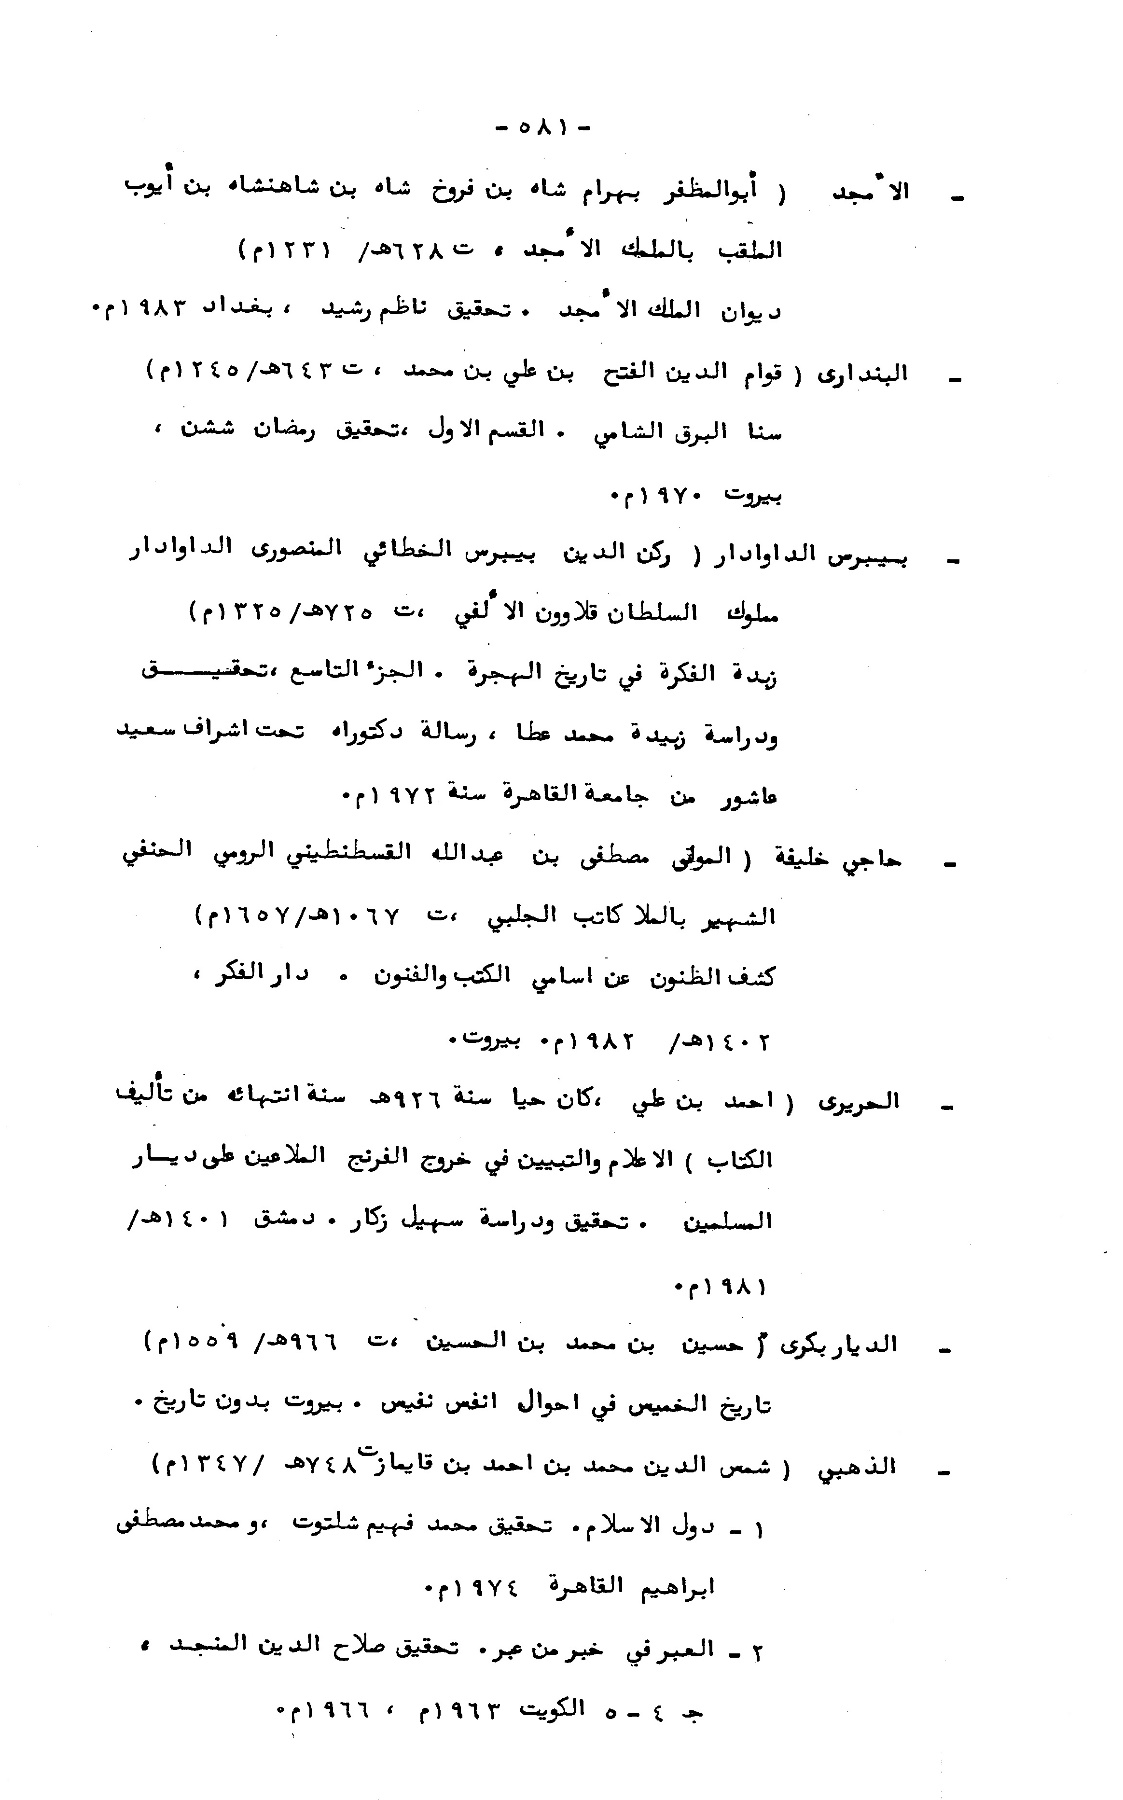 - ٥٨١ -
- الأمجد ( أبوالمظفر بهرام شاه بن فروخ شاه بن شاهنشاه بن أيوب
الملقب بالملك الأمجد ، ت ٦٢٨هـ/ ١٢٣١م)
ديوان الملك الأمجد . تحقيق ناظم رشيد ، بغداد ١٩٨٣م.
- البندارى ( قوام الدين الفتح بن علي بن محمد ، ت ٦٤٣هـ/ ١٢٤٥م)
سنا البرق الشامي . القسم الاول ،تحقيق رمضان ششن ،
بيروت ١٩٧٠م.
- بيبرس الداوادار ( ركن الدين بيبرس الخطائي المنصورى الداوادار
مملوك السلطان قلاوون الألفي ،ت ٧٢٥هـ/ ١٣٢٥م)
زبدة الفكرة في تاريخ الهجرة . الجزء التاسع ،تحقيـــق
ودراسة زبيدة محمد عطا ، رسالة دكتوراه تحت اشراف سعيد
عاشور من جامعة القاهرة سنة ١٩٧٢م.
- حاجي خليفة ( المولى مصطفى بن عبدالله القسطنطيني الرومي الحنفي
الشهير بالملا كاتب الجلبي ،ت ١٠٦٧هـ/ ١٦٥٧م)
كشف الظنون عن اسامي الكتب والفنون . دار الفكر ،
١٤٠٢هـ/ ١٩٨٢م. بيروت.
- الحريرى ( احمد بن علي ،كان حيا سنة ٩٢٦هـ سنة انتهائه من تأليف
الكتاب ) الاعلام والتبيين في خروج الفرنج الملاعين على ديـار
المسلمين . تحقيق ودراسة سهيل زكار . دمشق ١٤٠١هـ/
١٩٨١م.
- الديار بكرى ( حسين بن محمد بن الحسين ،ت ٩٦٦هـ/ ١٥٥٩م)
تاريخ الخميس في احوال انفس نفيس . بيروت بدون تاريخ .
- الذهبي ( شمس الدين محمد بن احمد بن قايماز ت ٧٤٨هـ /١٣٤٧م)
١ - دول الاسلام. تحقيق محمد فهيم شلتوت ،و محمد مصطفى
ابراهيم القاهرة ١٩٧٤م.
٢ - العبر في خبر من عبر. تحقيق صلاح الدين المنجد ،
جـ ٤ - ٥ الكويت ١٩٦٣م ، ١٩٦٦م.